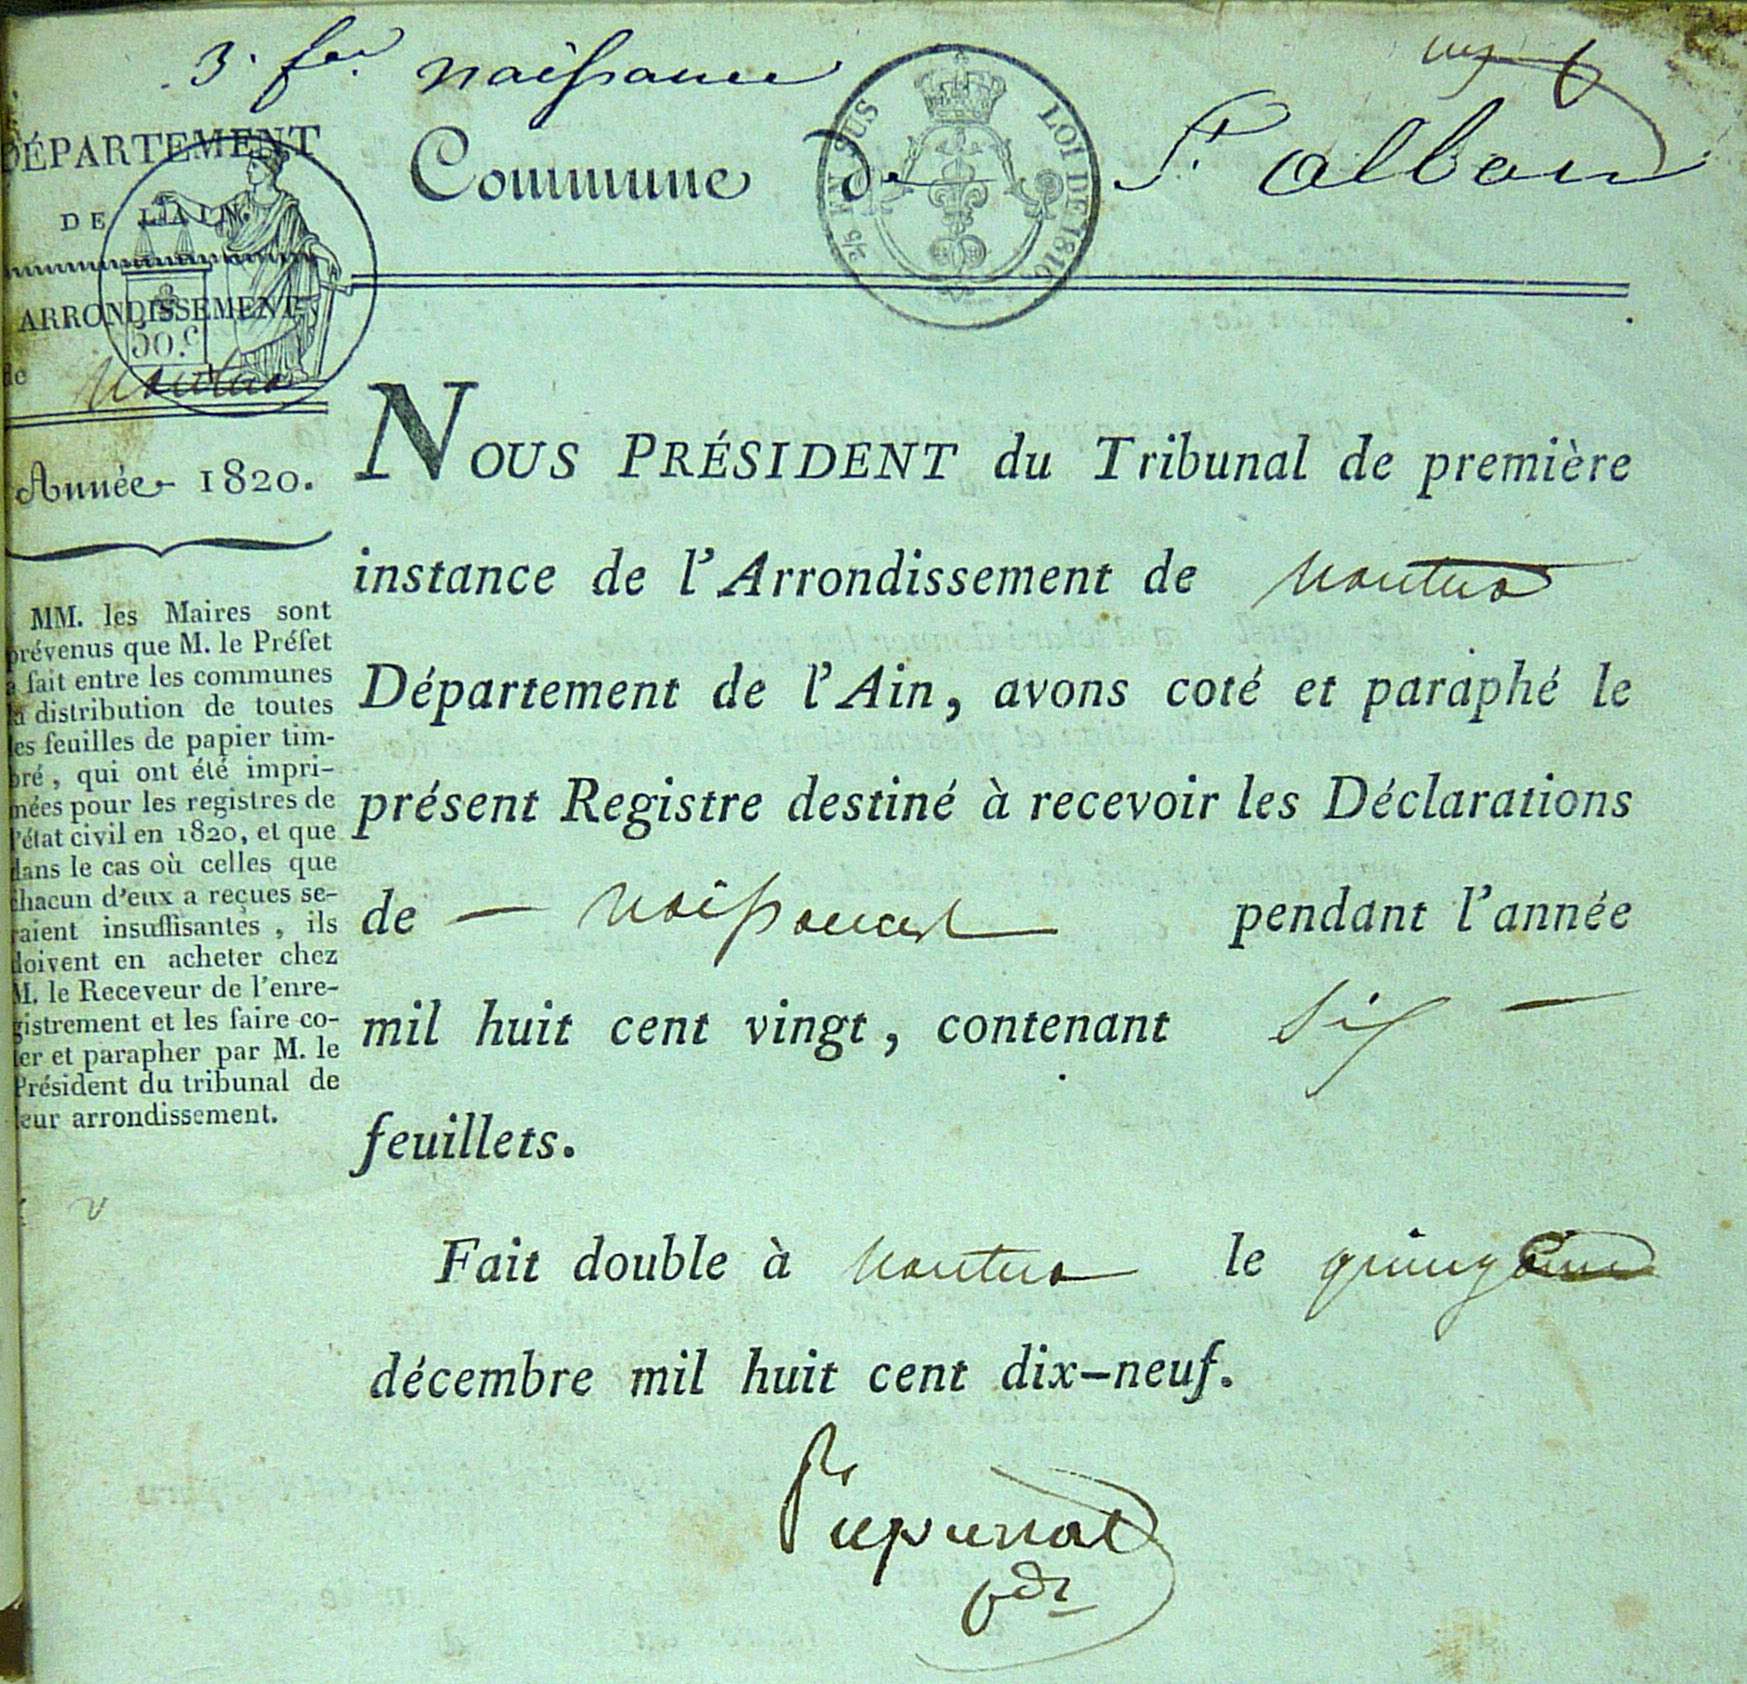 3. fer naissance
DÉPARTEMENT
DE L'AIN.
ARRONDISSEMENT
de Nantua
Année 1820.
Commune de St alban
2/5 EN SUS
LOI DE 1816
50.C
NOUS PRÉSIDENT du Tribunal de première
instance de l'Arrondissement de Nantua
Département de l'Ain, avons coté et paraphé le
présent Registre destiné à recevoir les Déclarations
de — naissances pendant l'année
mil huit cent vingt, contenant Six —
feuillets.
Fait double à Nantua le quinze
décembre mil huit cent dix-neuf.
pdt
MM. les Maires sont
prévenus que M. le Préfet
a fait entre les communes
la distribution de toutes
les feuilles de papier tim-
bré, qui ont été impri-
mées pour les registres de
l'état civil en 1820, et que
dans le cas où celles que
chacun d'eux a reçues se-
raient insuffisantes, ils
doivent en acheter chez
M. le Receveur de l'enre-
gistrement et les faire co-
ter et parapher par M. le
Président du tribunal de
leur arrondissement.